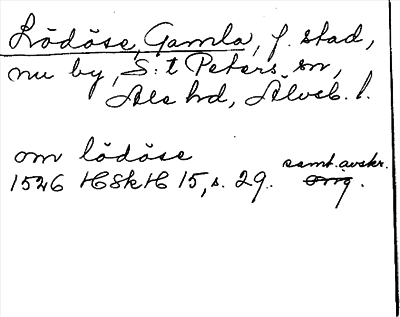 Lödöse, Gamla, f. stad,
nu by, S:t Peters sn,
Ale hd, Älvsb. l.
om lödöse samt. avskr.
1526 HSkH 15, s. 29. orig.